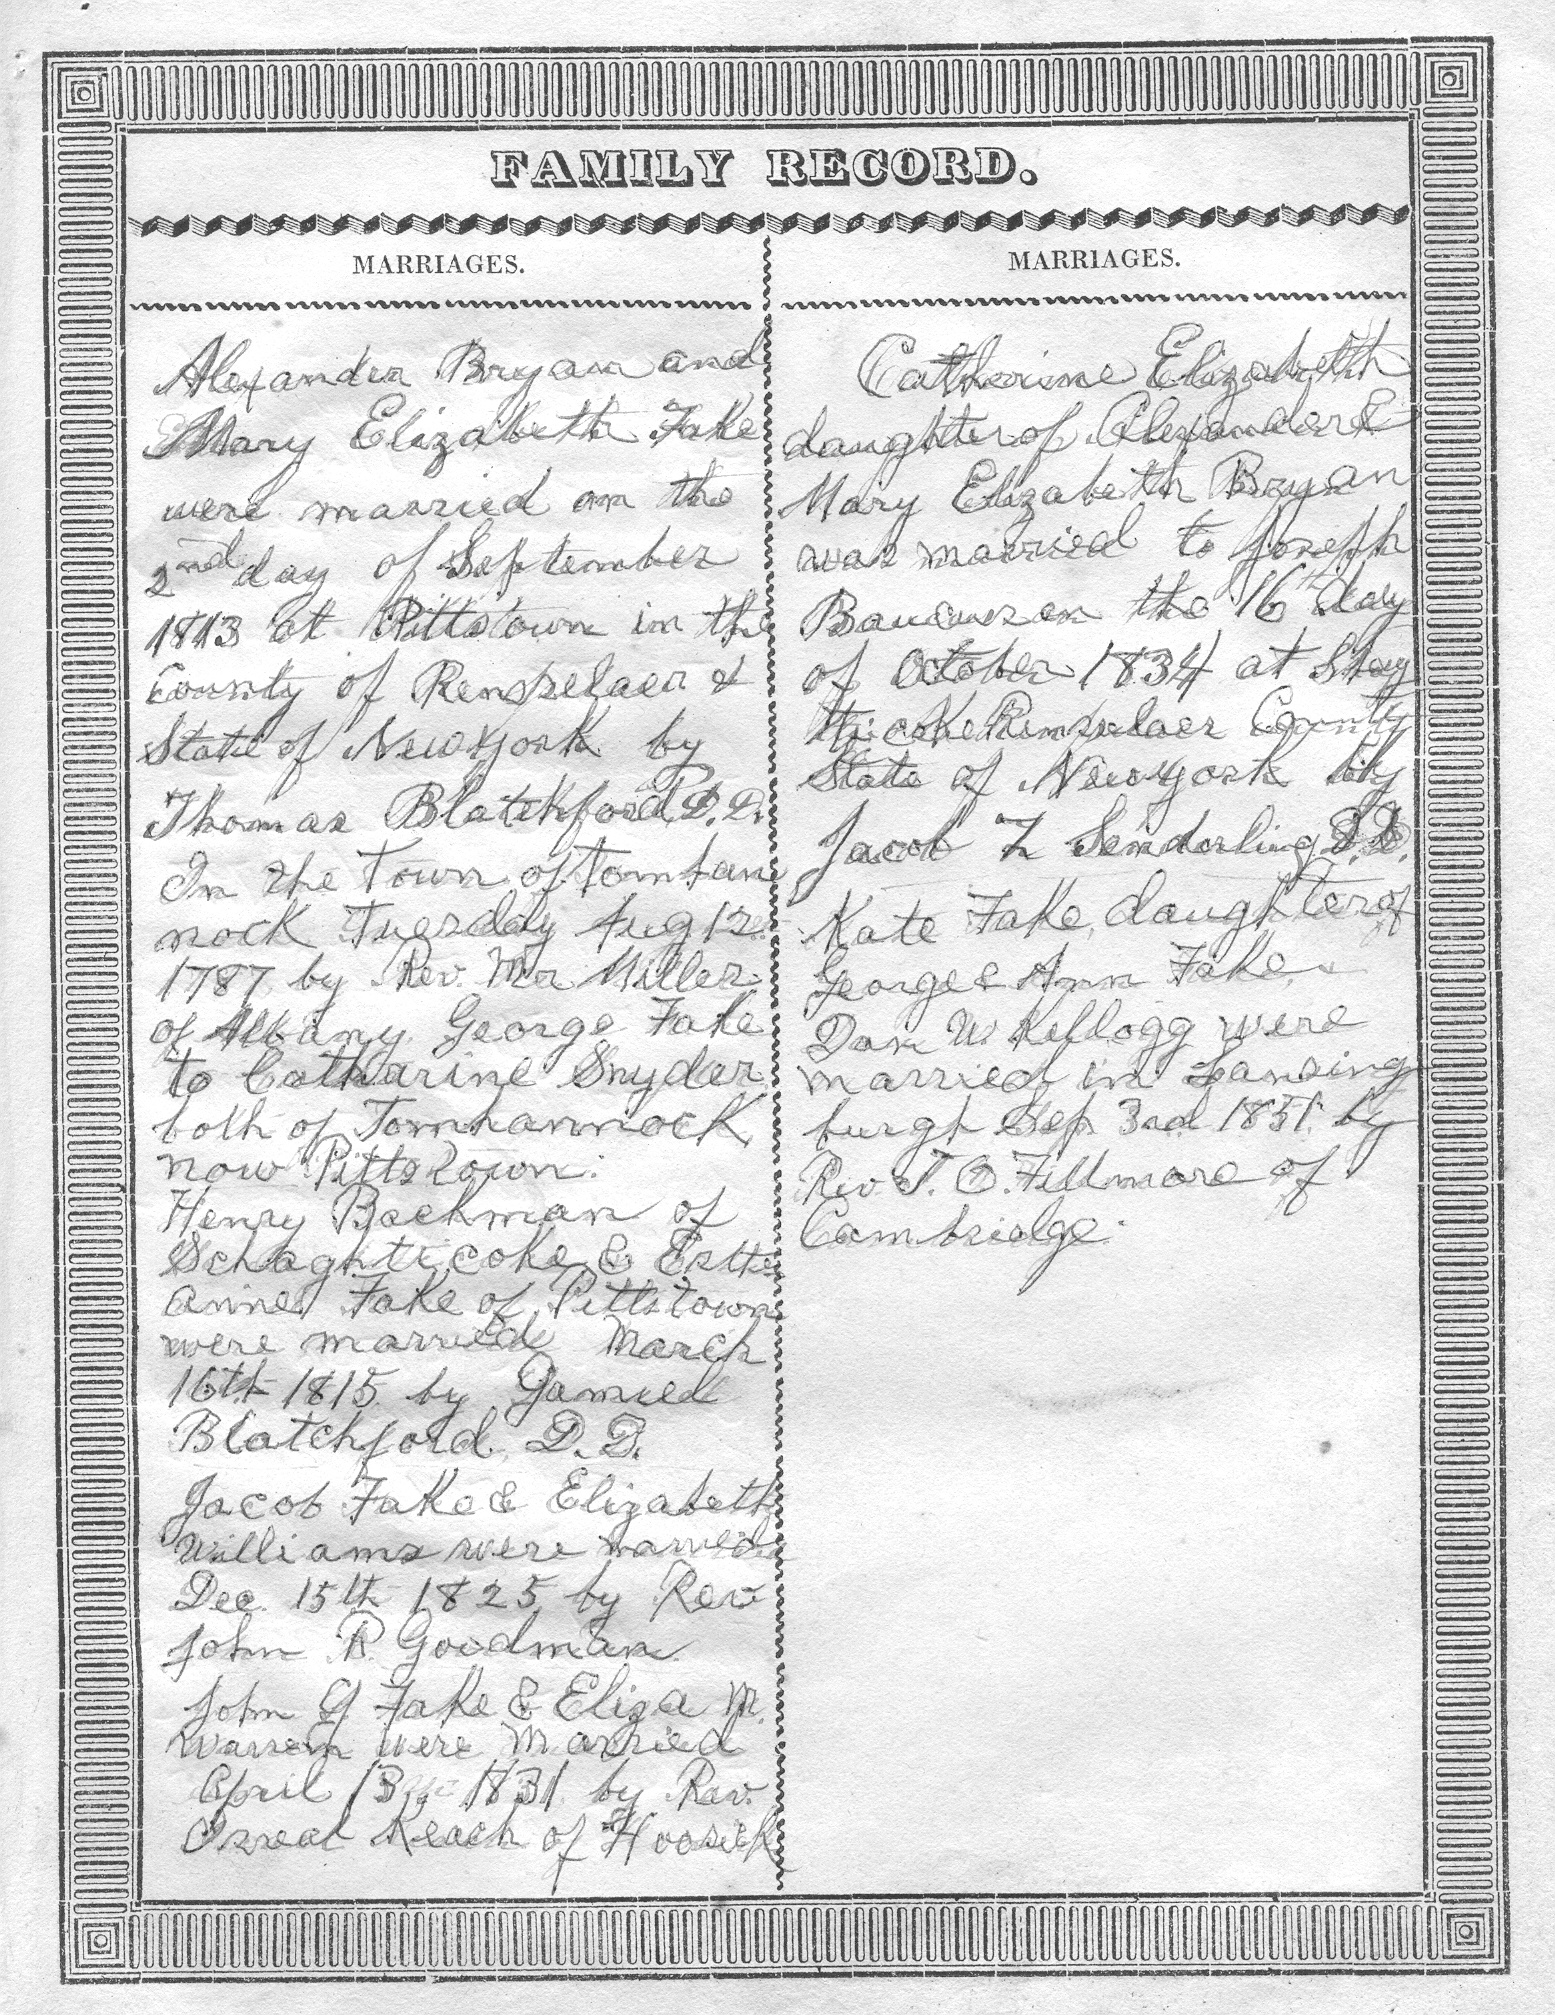 FAMILY RECORD.
MARRIAGES.
Alexander Bryan and
Mary Elizabeth Fake
were married on the
2nd day of September
1813 at Pittstown in the
County of Renszelaer &
State of New York by
Thomas Blatchford D.D.
In the Town of Tomhan
nock Tuesday Aug 12
1787 by Rev. Mr Miller
of Albany George Fake
to Catharine Snyder
both of Tomhannock
now Pittstown.
Henry Bachman of
Schaghticoke & Esther
Anne Fake of Pittstown
were married March
16th 1815 by Samuel
Blatchford D.D.
Jacob Fake & Elizabeth
Williams were married
Dec. 15th 1825 by Rev
John R. Goodman
John G Fake & Eliza M.
Warren were Married
April 13 1831 by Rev.
Keach of Hoosick
MARRIAGES.
Catherine Elizabeth
daughter of Alexander &
Mary Elizabeth Bryan
was married to Joseph
on the 16th day
of October 1834 at Shag
ticoke Renszelaer County
State of New York by
Jacob Z Senderling D.D.
Kate Fake, daughter of
George & Ann Fake.
Dan W. Kellogg were
married in Lansing
burgh Sep. 3rd 1851 by
Rev. J. O. Fillmore of
Cambridge.